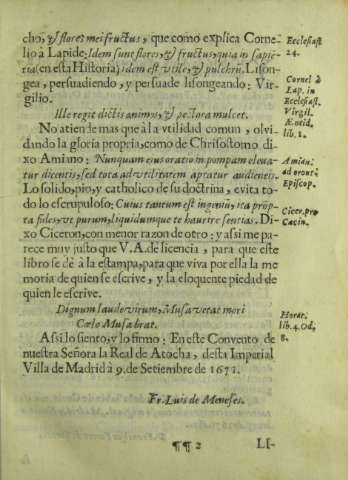 cho, & flores mei fructus, que como explica Corne- Ecclesiast
lio à Lapide: Idem sunt flores, & fructus, quia in sapiẽ- 24.
tia (en esta Historia) idem est vtile, & pulchrũ. Lison-
gea, persuadiendo, y persuade lisongeando: Vir- Cornel à
gilio. Lap. in
Ecclesiast.
Ille regit dictis animos, & pectora mulcet. Virgil.
No atiende mas que à la vtilidad comun, olvi- Æneid,
dando la gloria propria, como de Chrisostomo di- lib. 1.
xo Amiano: Nunquam eius oratio in pompam eleva- Amian:
tur dicentis, sed tota ad vtilitatem aptatur audientis. ad
Lo solido, pio, y catholico de su doctrina, evita to- Episcop.
do lo escrupuloso: Cuius tantum est ingenij, ita prõp-
ta fides, vt purum, liquidumque te haurire sentias. Di- Cicer. pro
xo Ciceron, con menor razon de otro: y assi me pa- Cæcin.
rece muy justo que V. A. de licencia, para que este
libro se dè à la estampa, para que viva por ella la me
moria de quien se escrive, y la eloquente piedad de
quien le escrive.
Dignum laude virum, Musa vetat mori Horat.
Cœlo Musa beat. lib. 4. Od,
Assi lo siento, y lo firmo: En este Convento de 8.
nuestra Señora la Real de Atocha, desta Imperial
Villa de Madrid à 9. de Setiembre de 1671.
Fr. Luis de Meneses.
¶¶ 2 LI-